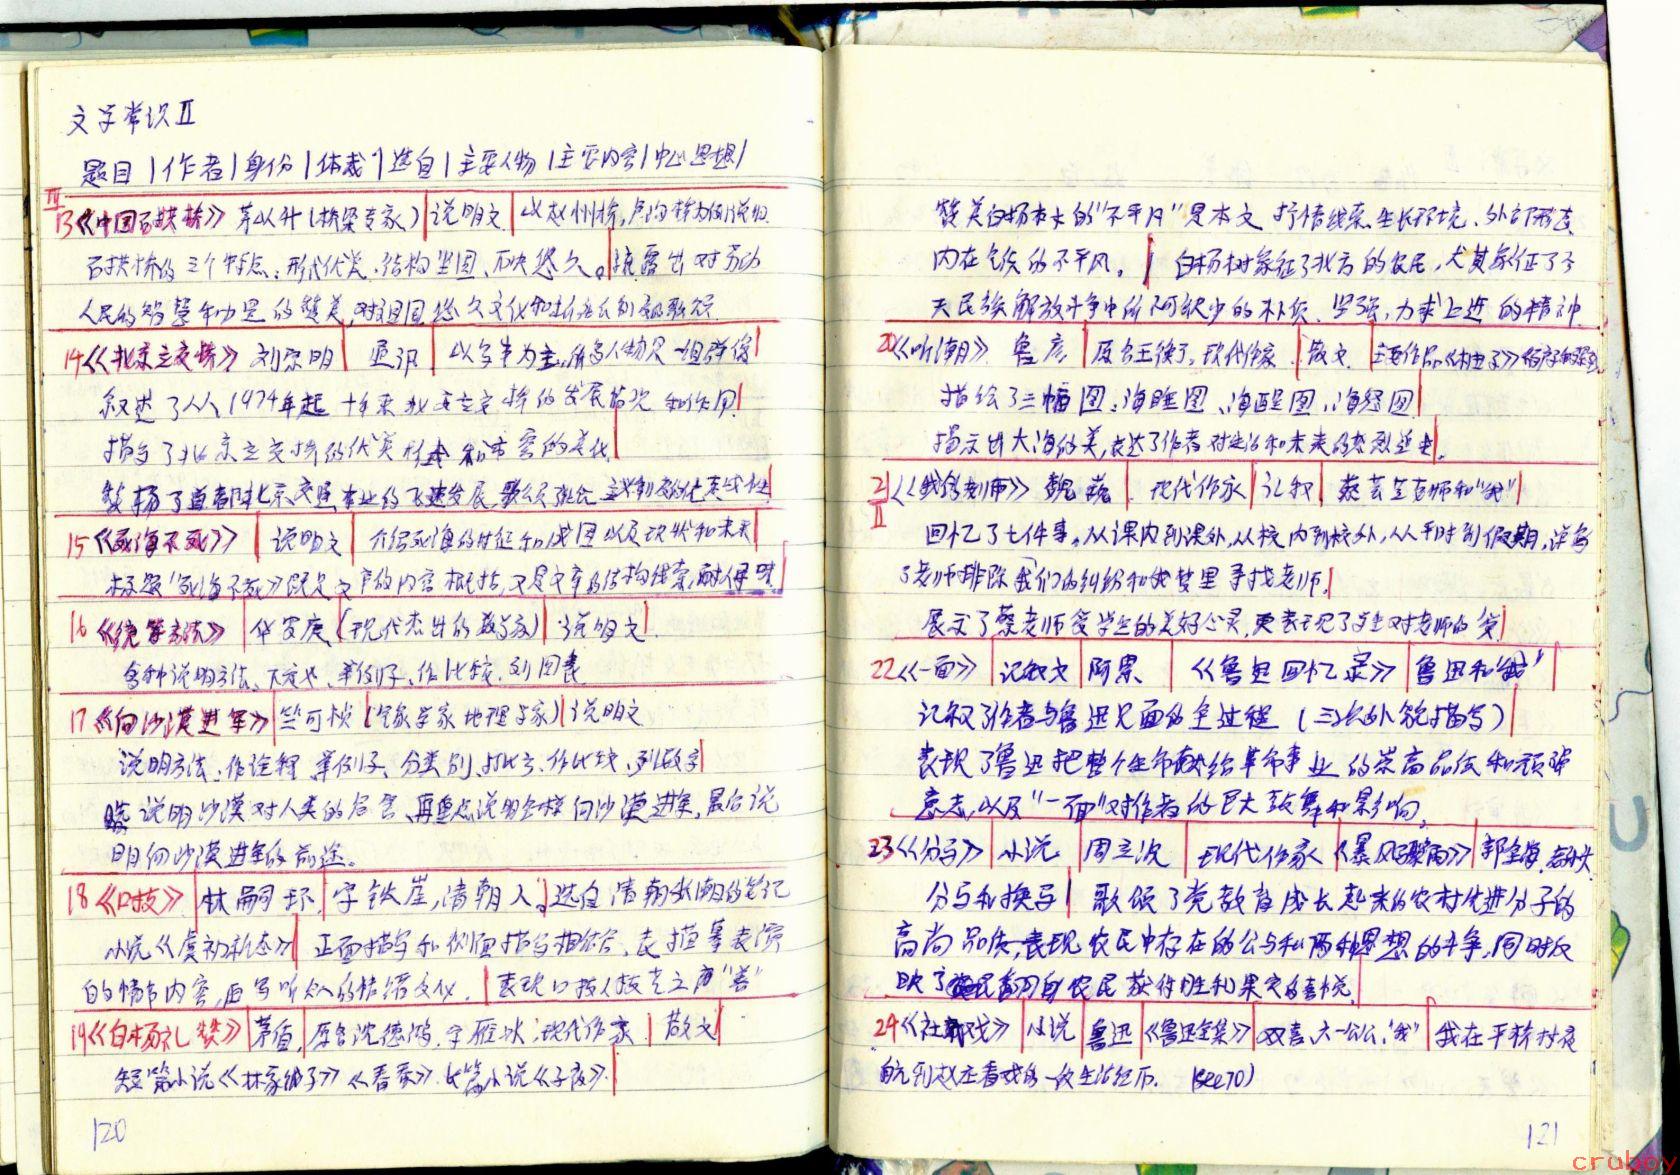 文学常识Ⅱ
题目|作者|身份|体裁|选自|主要人物|主要内容|中心思想|
Ⅲ
13《中国石拱桥》 茅以升(桥梁专家)|说明文|以赵州桥,卢沟桥为例说明
石拱桥的三个特点:形式优美.结构坚固、历史悠久。|流露出对劳动
人民的智慧和力量的赞美,对祖国悠久文化和
14《北京立交桥》 刘宗明| 通讯| 以写事为主,所写人物只一组群像|
叙述了人从1974年起 十年来 北京立交桥的发展情况和作用|
描写了北京立交桥的优美形式和市容的变化|
赞扬了首都北京交通事业的飞速发展,歌颂
15《死海不死》| 说明文| 介绍死海的特征和成因以及现状和未来|
标题"死海不死"既是文章的内容概括,又是文章的结构线索,耐人寻味
16《统筹方法》| 华罗庚(现代杰出的数学家)| 说明文|
各种说明方法、下定义、举例子、作比较、列图表
17《向沙漠进军》|竺可桢(气象学家地理学家)|说明文
说明方法:作诠释 举例子、分类别、打比方、作比较、列数字|
说明沙漠对人类的危害、再重点说明怎样向沙漠进军,最后说
明向沙漠进军的前途。
18《口技》|林嗣环|字铁崖,清朝人。|选自清朝张潮的笔记
小说《虞初新志》| 正面描写和侧面描写相结合、表描摹表演
的情节内容,且写听众的情绪变化.|表现口技人技艺之高"善"
19《白杨礼赞》|茅盾|原名沈德鸿,字雁冰,现代作家|散文|
短篇小说《林家铺子》《春蚕》.长篇小说《子夜》.|
120
赞美白杨树木的"不平凡"是本文抒情线索.生长环境、外部形态
内在气质的不平凡。| 白杨树象征了北方的农民,尤其象征了今
天民族解放斗争中所不可缺少的朴质、坚强,力求上进的精神.
20《听潮》.鲁彦|原名王衡了,现代作家.|散文.|主要作品《柚子》
描绘了三幅图:海睡图、海醒图、海怒图|
揭示出大海的美,表达了作者对生活和未来的热烈追求|
21《我的老师》 魏巍| 现代作家|记叙| 蔡芸芝老师和"我"|
Ⅱ
回忆了七件事。从课内到课外,从校内到校外,从平时到假期,详写
了老师排除我们的纠纷和我梦里寻找老师|
展示了蔡老师爱学生的美好心灵,更表现了学生对老师的爱|
22《一面》|记叙文|阿累| 《鲁迅回忆录》|鲁迅和"我"|
记叙了作者与鲁迅见面的全过程(三次外貌描写)|
表现了鲁迅把整个生命献给革命事业的崇高品质和顽强
意志,以及"一面"对作者的巨大鼓舞和影响。
23《分马》|小说|周立波|现代作家《暴风骤雨》|郭全海,老孙头
分马和换马| 歌颂了党教育成长起来的农村先进分子的
高尚品质,表现农民中存在的公与私两种思想的斗争,同时反
映了农民获得胜利果实的喜悦|
24《社戏》|小说|鲁迅|《鲁迅全集》|双喜、六一公公、"我"|我在平桥村夜
航到赵庄看戏的一段生活经历.(see70)
121
cruboy